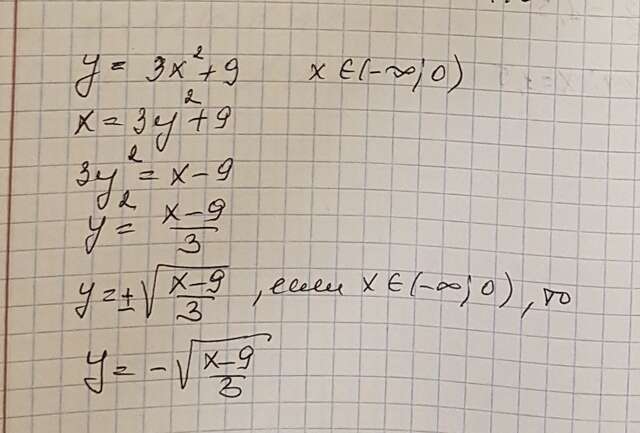 y = 3x² + 9 x ∈ (-∞; 0)
x = 3y² + 9
3y² = x - 9
y² = \frac{x-9}{3}
y = ± \sqrt{\frac{x-9}{3}}, если x ∈ (-∞; 0), то
y = - \sqrt{\frac{x-9}{3}}